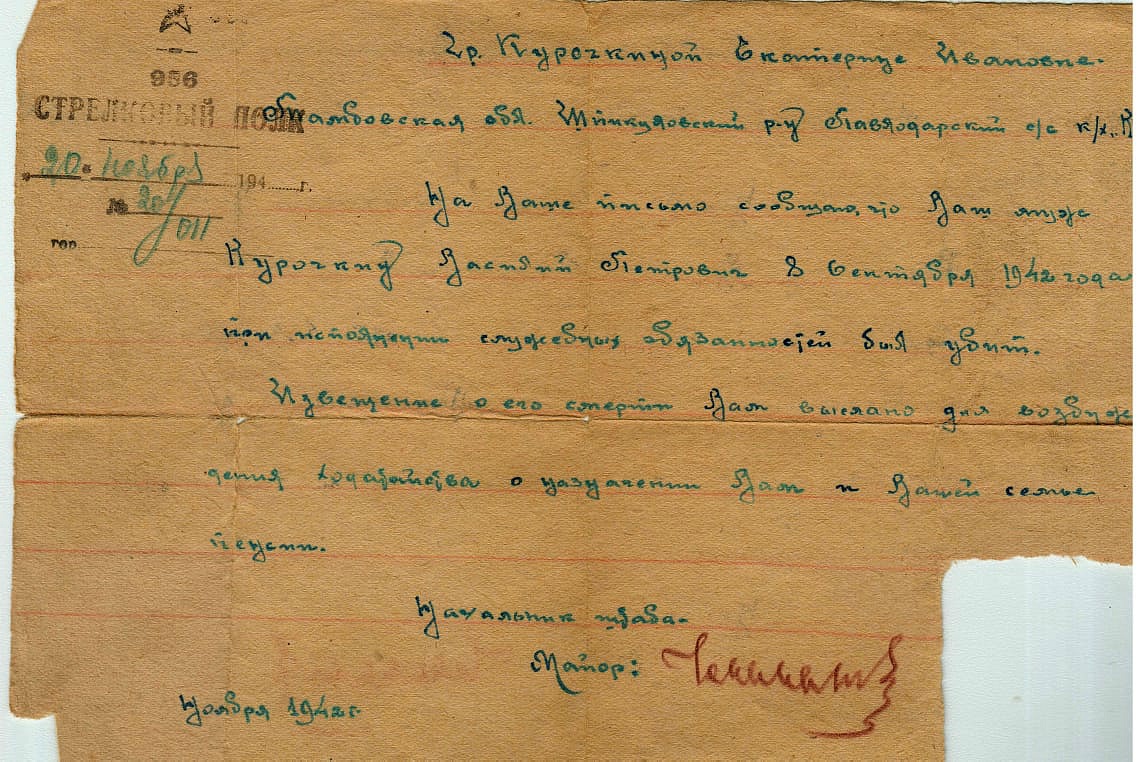 956
СТРЕЛКОВЫЙ ПОЛК
„20" ноября 194 г.
№ 20/011
гор.
Гр. Курочкиной Екатерине Ивановне.
Тамбовская обл. р-н с/с к/х
На Ваше письмо сообщаю, что Ваш муж
Курочкин Василий Петрович 8 Сентября 1942 года
при исполнении служебных обязанностей был убит.
Извещение о его смерти Вам выслано для возбуж
дения ходатайства о назначении Вам и Вашей семье
пенсии.
Начальник штаба-
Майор:
Ноября 1942 г.